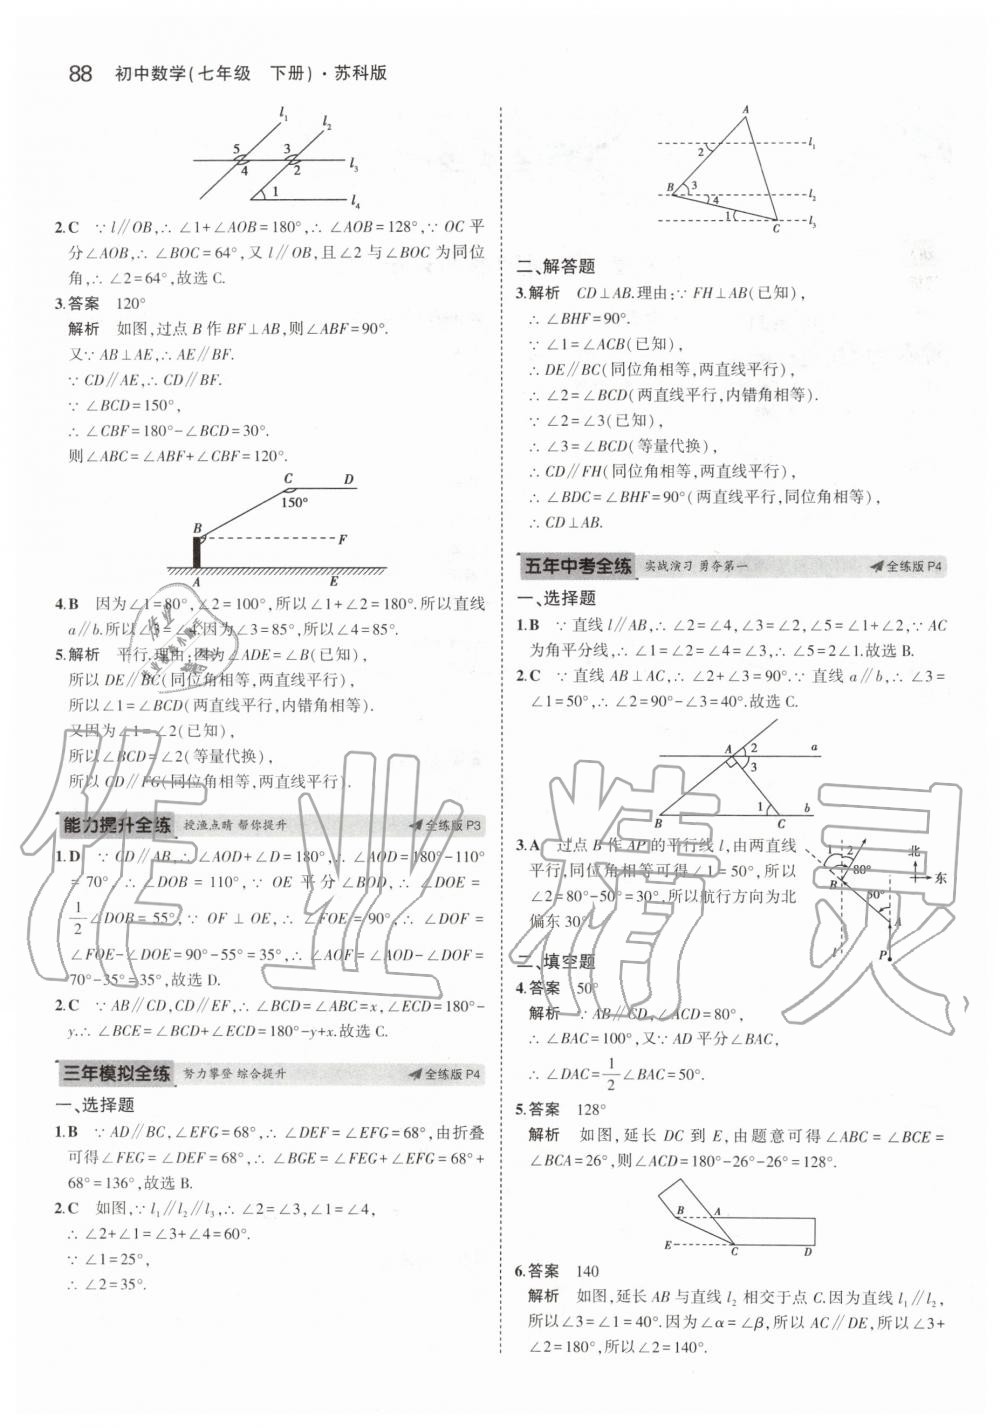 88 初中数学(七年级 下册)·苏科版
l₁
l₂
5 3
4 2
l₃
1
l₄
2.C ∵l∥OB,∴∠1+∠AOB=180°,∴∠AOB=128°,∵OC平
分∠AOB,∴∠BOC=64°,又l∥OB,且∠2与∠BOC为同位
角,∴∠2=64°,故选C.
3.答案 120°
解析 如图,过点B作BF⊥AB,则∠ABF=90°.
又∵AB⊥AE,∴AE∥BF.
∵CD∥AE,∴CD∥BF.
∵∠BCD=150°,
∴∠CBF=180°-∠BCD=30°.
则∠ABC=∠ABF+∠CBF=120°.
C D
150°
B
F
A E
4.B 因为∠1=80°,∠2=100°,所以∠1+∠2=180°.所以直线
a∥b.所以∠3=∠4.因为∠3=85°,所以∠4=85°.
5.解析 平行.理由:因为∠ADE=∠B(已知),
所以DE∥BC(同位角相等,两直线平行),
所以∠1=∠BCD(两直线平行,内错角相等).
又因为∠1=∠2(已知),
所以∠BCD=∠2(等量代换),
所以CD∥FG(同位角相等,两直线平行).
能力提升全练 授渔点睛 帮你提升 全练版P3
1.D ∵CD∥AB,∴∠AOD+∠D=180°,∴∠AOD=180°-110°
=70°,∴∠DOB=110°,∵OE平分∠BOD,∴∠DOE=
1/2∠DOB=55°,∵OF⊥OE,∴∠FOE=90°,∴∠DOF=
∠FOE-∠DOE=90°-55°=35°,∴∠AOF=∠AOD-∠DOF=
70°-35°=35°,故选D.
2.C ∵AB∥CD,CD∥EF,∴∠BCD=∠ABC=x,∠ECD=180°-
y.∴∠BCE=∠BCD+∠ECD=180°-y+x.故选C.
三年模拟全练 努力攀登 综合提升 全练版P4
一、选择题
1.B ∵AD∥BC,∠EFG=68°,∴∠DEF=∠EFG=68°,由折叠
可得∠FEG=∠DEF=68°,∴∠BGE=∠FEG+∠EFG=68°+
68°=136°,故选B.
2.C 如图,∵l₁∥l₂∥l₃,∴∠2=∠3,∠1=∠4,
∴∠2+∠1=∠3+∠4=60°.
∵∠1=25°,
∴∠2=35°.
A
2
l₁
B 3
4
l₂
1
C
l₃
二、解答题
3.解析 CD⊥AB.理由:∵FH⊥AB(已知),
∴∠BHF=90°.
∵∠1=∠ACB(已知),
∴DE∥BC(同位角相等,两直线平行),
∴∠2=∠BCD(两直线平行,内错角相等).
∵∠2=∠3(已知),
∴∠3=∠BCD(等量代换),
∴CD∥FH(同位角相等,两直线平行),
∴∠BDC=∠BHF=90°(两直线平行,同位角相等),
∴CD⊥AB.
五年中考全练 实战演习 勇夺第一 全练版P4
一、选择题
1.B ∵直线l∥AB,∴∠2=∠4,∠3=∠2,∠5=∠1+∠2,∵AC
为角平分线,∴∠1=∠2=∠4=∠3,∴∠5=2∠1.故选B.
2.C ∵直线AB⊥AC,∴∠2+∠3=90°.∵直线a∥b,∴∠3=
∠1=50°,∴∠2=90°-∠3=40°.故选C.
A 2 a
3
1 b
B C
3.A 过点B作AP的平行线l,由两直线
平行,同位角相等可得∠1=50°,所以
∠2=80°-50°=30°,所以航行方向为北
偏东30°.
1 2
80°
B
50°
A
l
P
北
东
二、填空题
4.答案 50°
解析 ∵AB∥CD,∠ACD=80°,
∴∠BAC=100°,又∵AD平分∠BAC,
∴∠DAC=1/2∠BAC=50°.
5.答案 128°
解析 如图,延长DC到E,由题意可得∠ABC=∠BCE=
∠BCA=26°,则∠ACD=180°-26°-26°=128°.
B A
E C D
6.答案 140
解析 如图,延长AB与直线l₂相交于点C.因为直线l₁∥l₂,
所以∠3=∠1=40°.因为∠α=∠β,所以AC∥DE,所以∠3+
∠2=180°,所以∠2=140°.
作业精灵